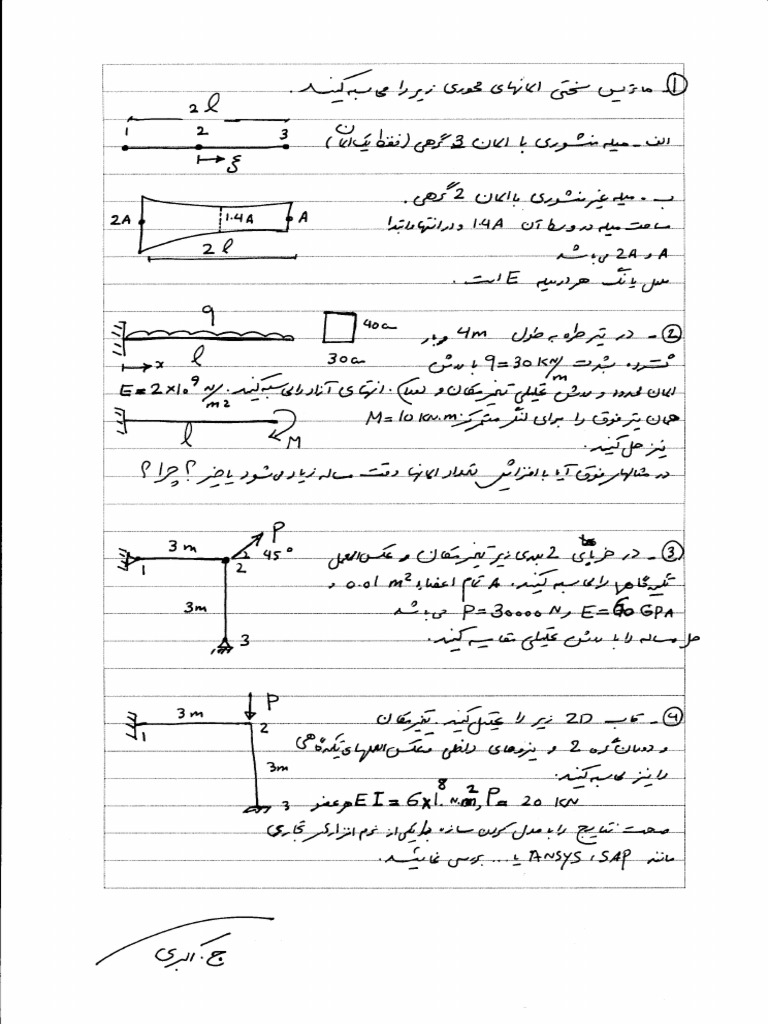 ① - ماتریس سختی المانهای محوری زیر را محاسبه کنید.
2l
1 2 3
الف - میله منشوری با المان 3 گرهی (فقط یک المان)
ξ
ب - میله غیر منشوری با المان 2 گرهی.
2A 1.4A A
مساحت میله در وسط آن 1.4A و در انتها و ابتدا
2l
A و 2A می باشد
مدل یانگ هر دو میله E است.
② - در تیر طره به طول 4m و بار
q
40cm
30cm
l
x
گسترده بشدت q=30 KN/m با روش
المان محدود و روش تحلیلی تغییر مکان و انتهای آزاد را محاسبه کنید. E=2×10⁹ N/m²
همان تیر فوق را برای لنگر متمرکز M=10 KN.m
l
M
نیز حل کنید.
در مثالهای فوق آیا با افزایش تعداد المانها دقت مساله زیاد می شود یا خیر؟ چرا؟
③ - در خرپای 2 بعدی زیر تغییر مکان و عکس العمل
P
3m
45°
1
2
تکیه گاهها را محاسبه کنید. A تمام اعضاء 0.01 m² و
3m
E=60 GPA و P=30000 N می باشد
3
حل مساله را با روش تحلیلی مقایسه کنید.
④ - قاب 2D زیر را تحلیل کنید. تغییر مکان
P
3m
1
2
و دوران گره 2 و نیروهای داخلی و عکس العملهای تکیه گاهی
3m
را نیز محاسبه کنید.
3
EI=6×10⁸ N.m², P= 20 KN
صحت نتایج را با مدل کردن سازه با یکی از نرم افزارهای تجاری
مانند SAP، ANSYS یا ... بررسی نمائید.
ج. اکبری